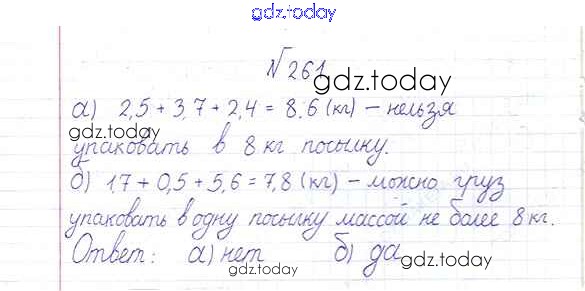 gdz.today
№ 261
gdz.today
а) 2,5 + 3,7 + 2,4 = 8,6 (кг) – нельзя
gdz.today
упаковать в 8 кг посылку.
б) 1,7 + 0,5 + 5,6 = 7,8 (кг) – можно груз
упаковать в одну посылку массой не более 8 кг.
Ответ: а) нет б) да
gdz.today
gdz.today